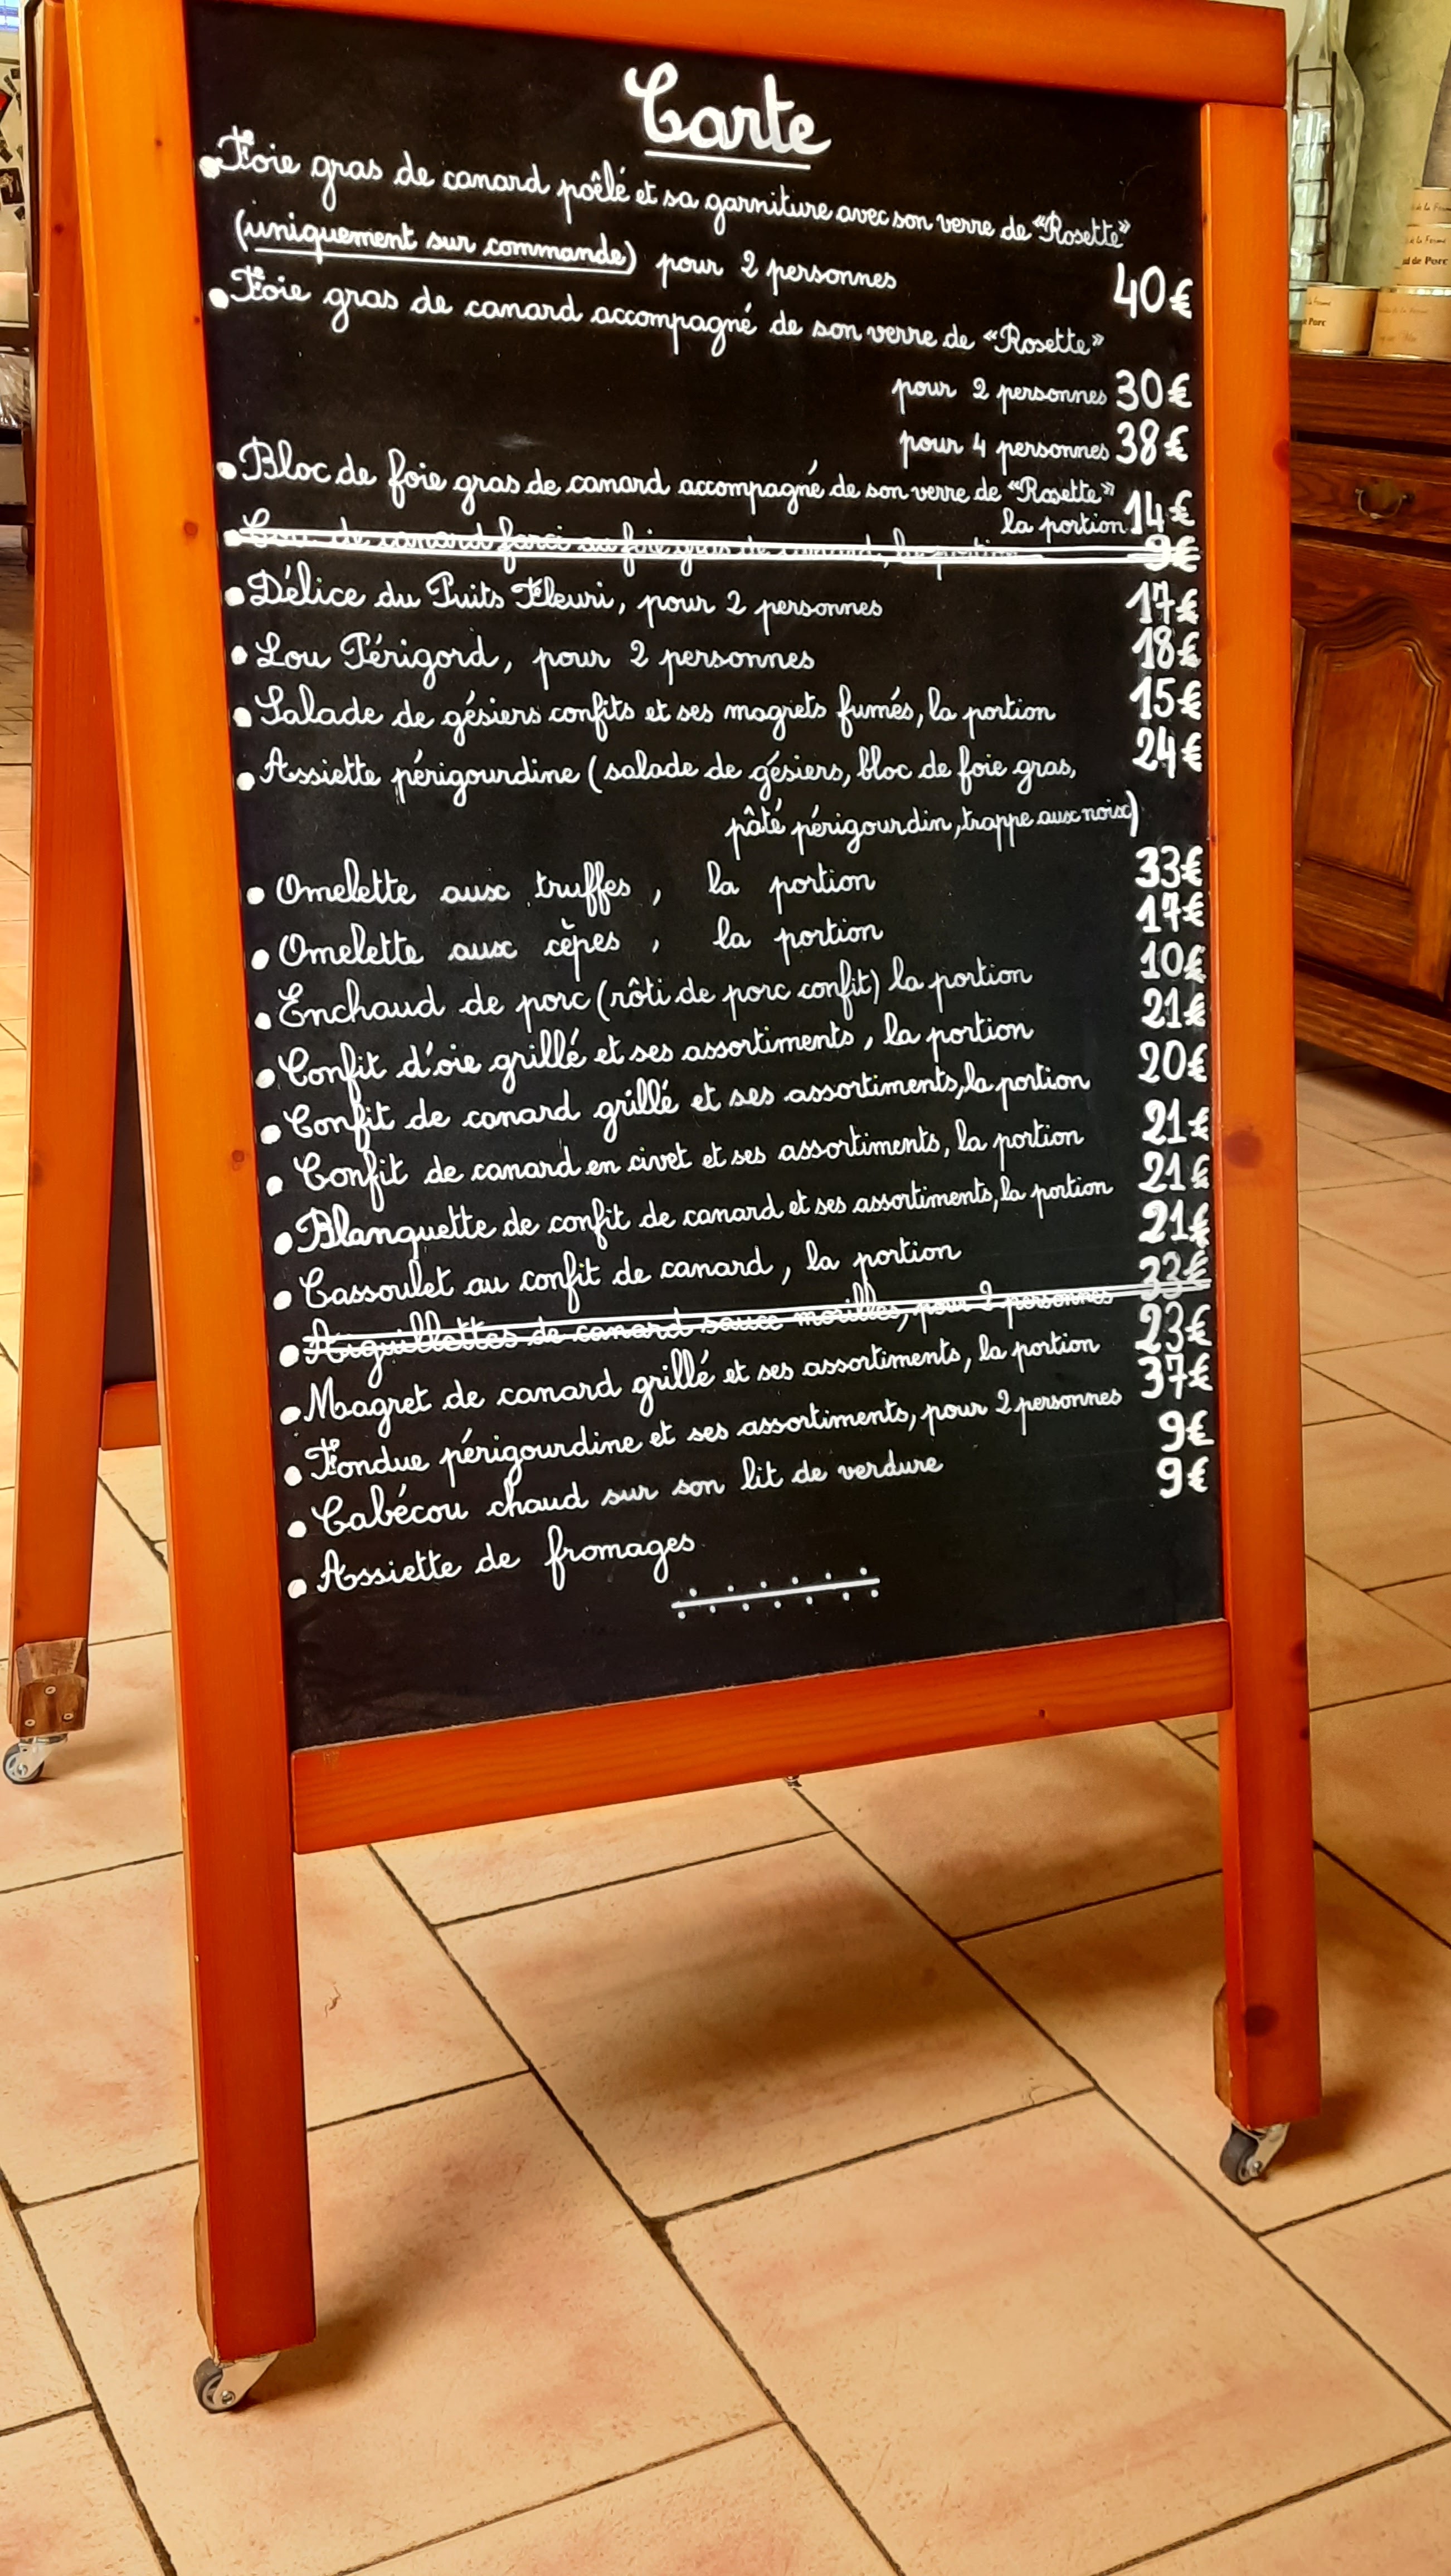 Carte
• Foie gras de canard poêlé et sa garniture avec son verre de "Rosette"
(uniquement sur commande) pour 2 personnes 40€
• Foie gras de canard accompagné de son verre de "Rosette"
pour 2 personnes 30€
pour 4 personnes 38€
• Bloc de foie gras de canard accompagné de son verre de "Rosette"
la portion 14€
• Cou de canard farci au foie gras de canard, la portion 9€
• Délice du Puits Fleuri, pour 2 personnes 17€
• Lou Périgord, pour 2 personnes 18€
• Salade de gésiers confits et ses magrets fumés, la portion 15€
• Assiette périgourdine (salade de gésiers, bloc de foie gras, 24€
pâté périgourdin, trappe aux noix)
• Omelette aux truffes, la portion 33€
• Omelette aux cèpes, la portion 17€
• Enchaud de porc (rôti de porc confit) la portion 10€
• Confit d'oie grillé et ses assortiments, la portion 21€
• Confit de canard grillé et ses assortiments, la portion 20€
• Confit de canard en civet et ses assortiments, la portion 21€
• Blanquette de confit de canard et ses assortiments, la portion 21€
• Cassoulet au confit de canard, la portion 21€
• Aiguillettes de canard sauce morilles, pour 2 personnes 33€
• Magret de canard grillé et ses assortiments, la portion 23€
• Fondue périgourdine et ses assortiments, pour 2 personnes 37€
• Cabécou chaud sur son lit de verdure 9€
• Assiette de fromages 9€
de Porc
Porc